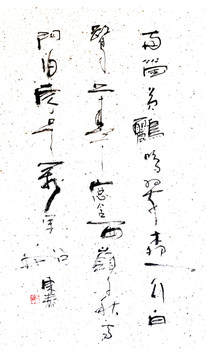 兩箇黃鸝鳴翠柳一行白
鷺上青天窗含西嶺千秋雪
門泊東吳萬里船